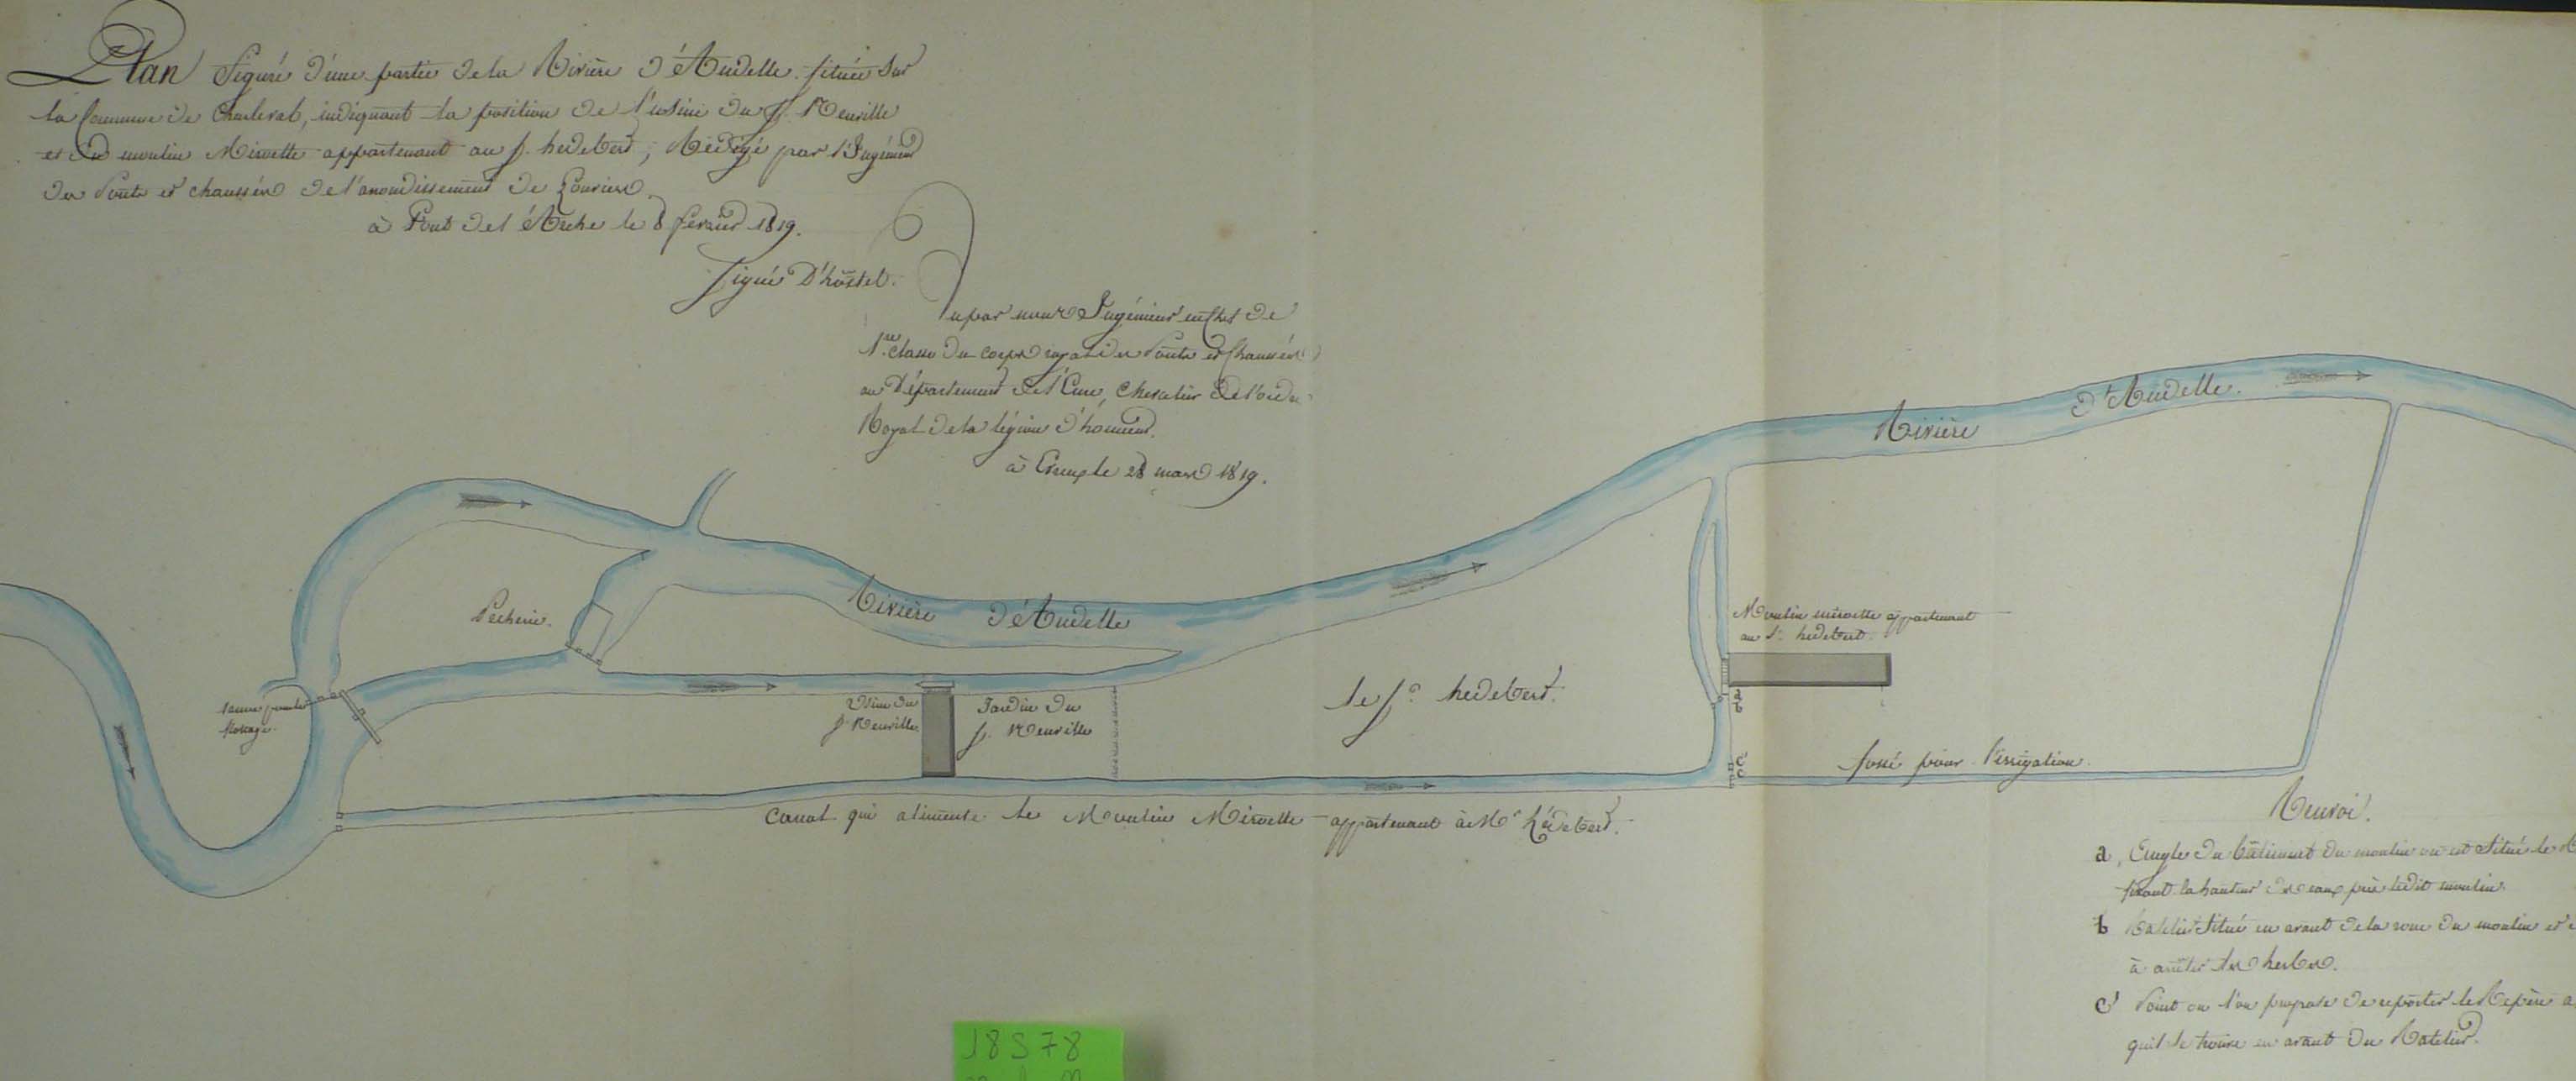 Plan figuré d'une partie de la Rivière d'Andelle située sur
la Commune de Charleval, indiquant la position de l'usine du S. Neuville
et du moulin Miroelle appartenant au S. hedebert, Rédigé par l'Ingénieur
des Ponts et chaussées de l'arrondissement de Louviers
à Pont de l'Arche le 8 février 1819.
signé D'hostel.
Vu par nous Ingénieur en Chef de
1.re classe du corps royal des Ponts et Chaussées
au Département de l'Eure, chevalier de l'ordre
Royal de la légion d'honneur.
à Evreux le 28 mars 1819.
Rivière d'Andelle.
Pêcherie.
Rivière d'Andelle
Moulin miroelle appartenant
au S. hedebert.
flottage.
Usine du
S. Neuville.
Jardin du
S. Neuville
le S.r hedebert.
a
b
c
fossé pour l'irrigation.
Canal qui alimente le Moulin Miroelle appartenant à M.r hédebert.
Renvoi.
a, Engle du bâtiment du moulin ou est situé le
fixant la hauteur des eaux près ledit moulin.
b Ratelier situé en avant de la roue du moulin et
à arrêter les herbes.
c Point ou l'on propose de reporter le Repère a
qu'il se trouve en avant du Ratelier.
18 S 78